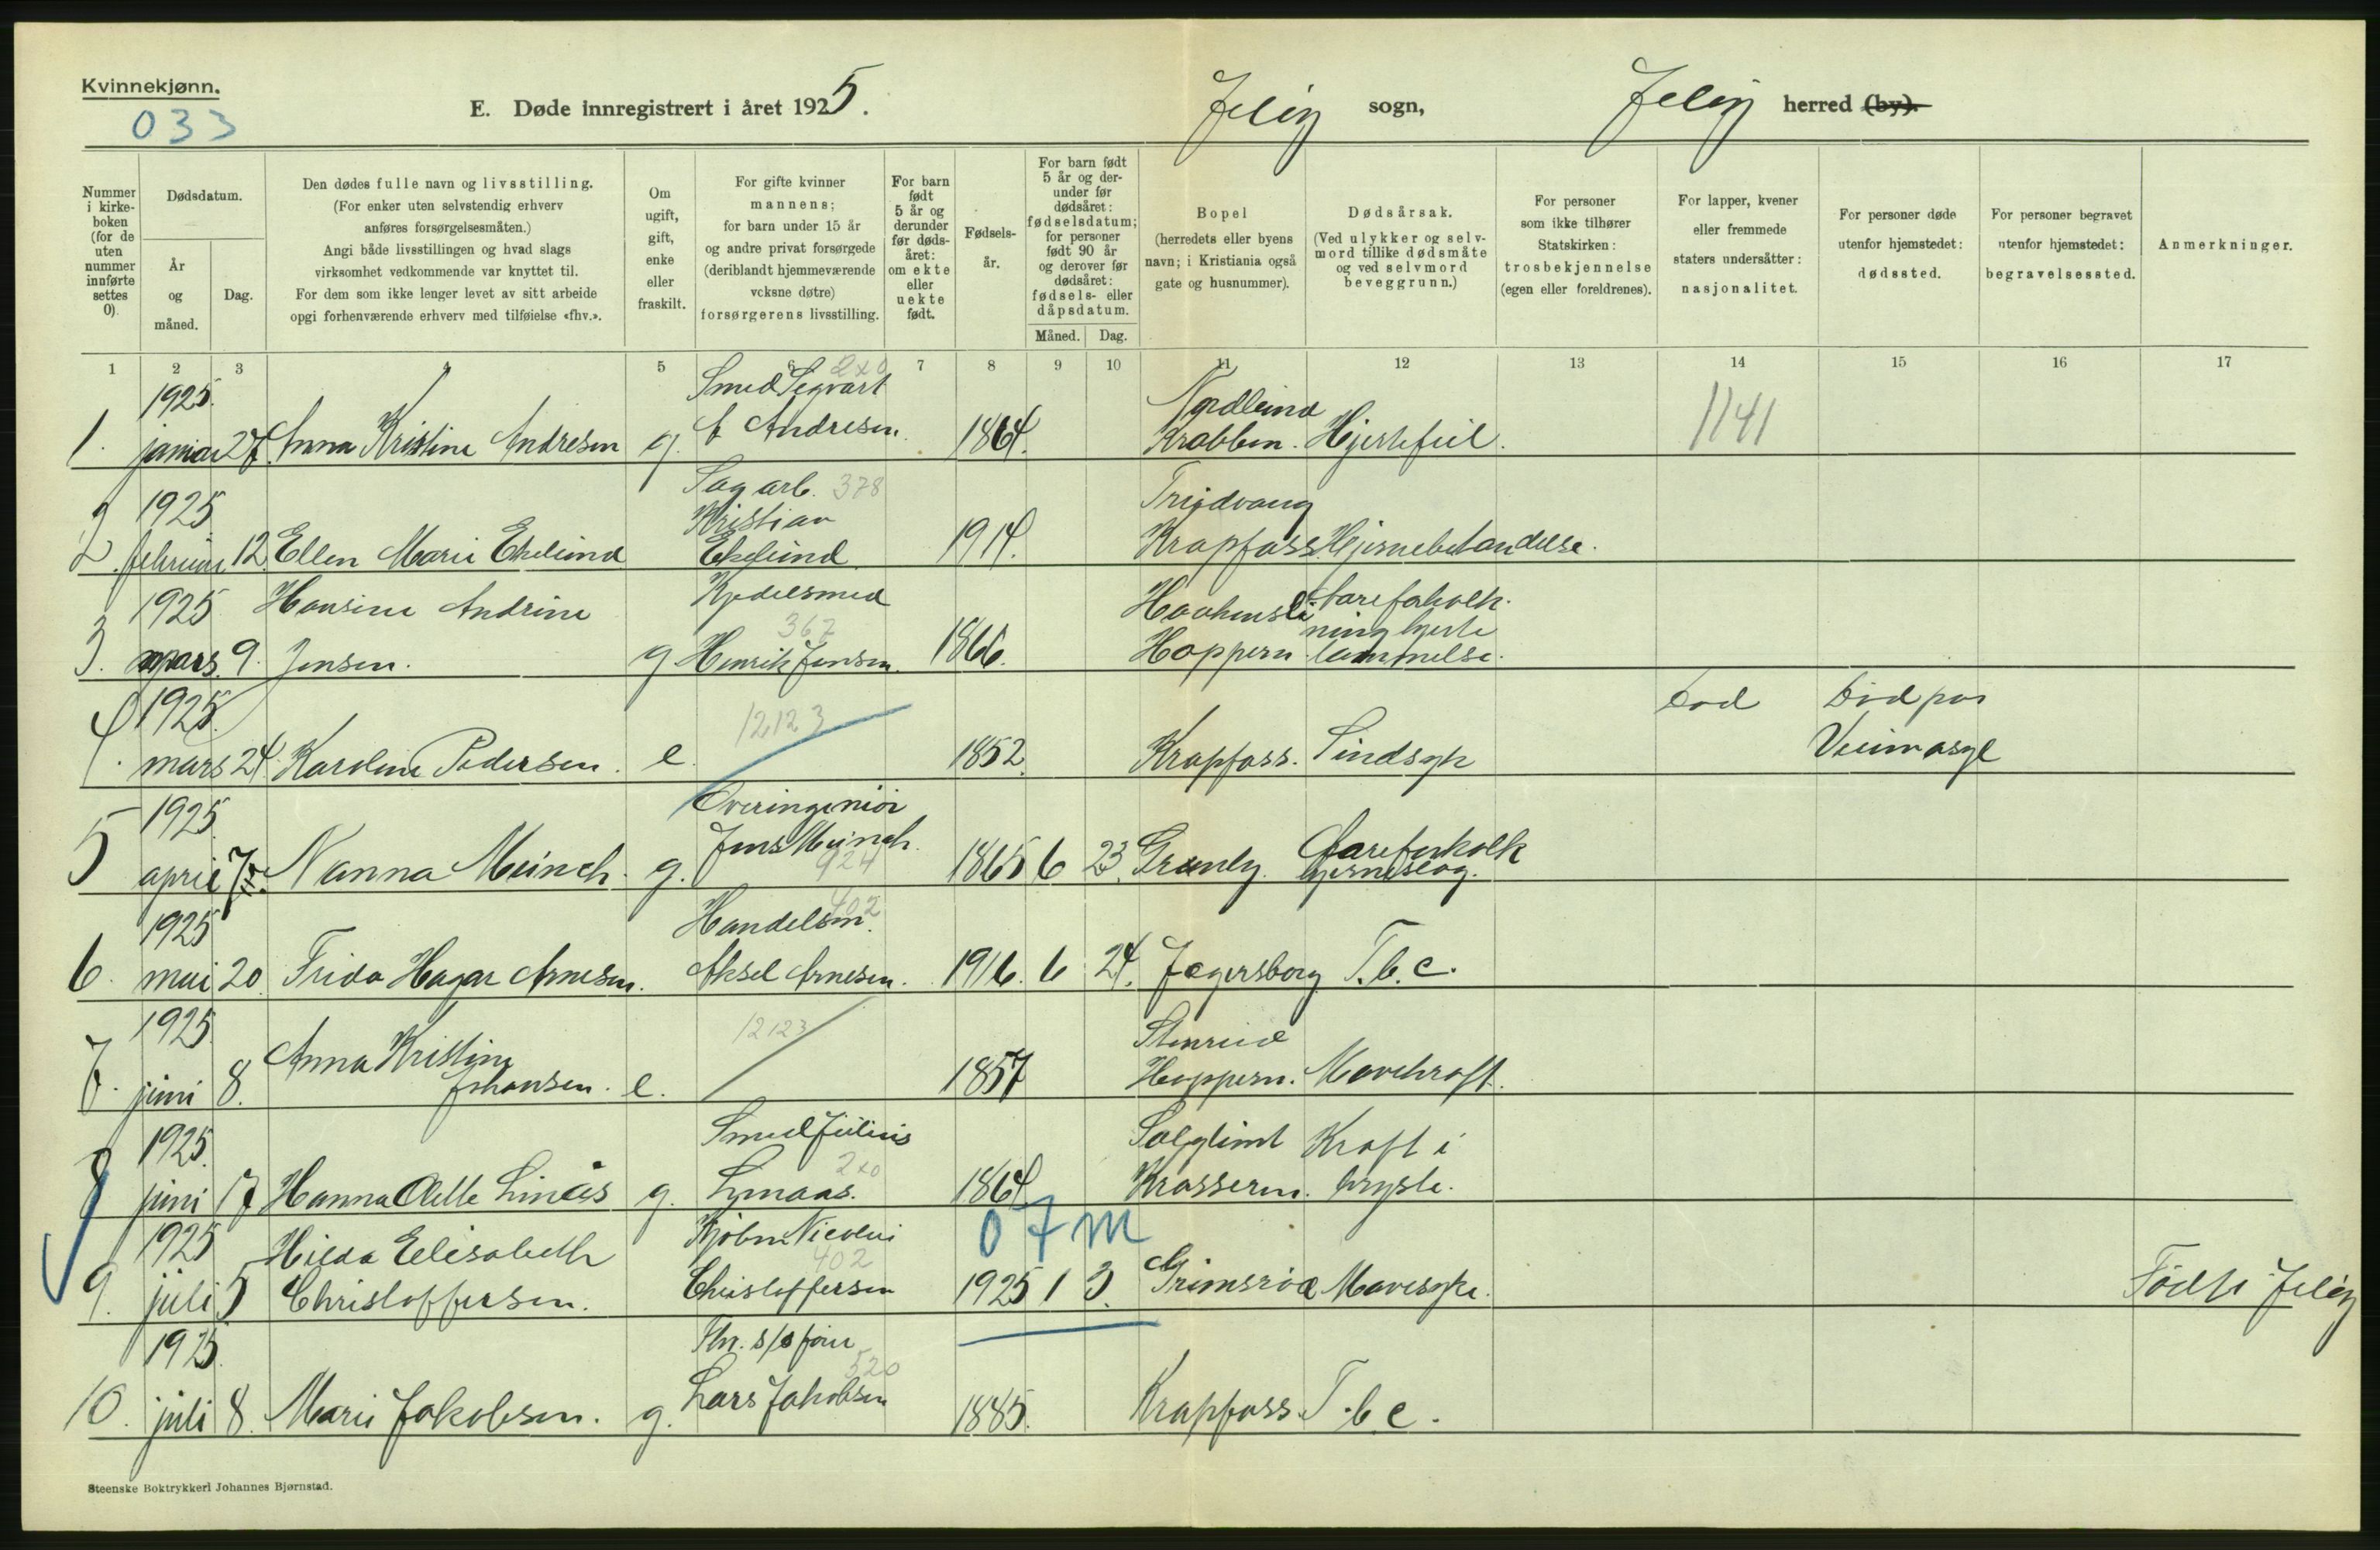 Kvinnekjønn.
033
E. Døde innregistrert i året 1925.
Jeløy sogn,
Jeløy herred (by).
Nummer i kirkeboken (for de uten nummer innførte settes 0).
Dødsdatum.
År og måned.
Dag.
Den dødes fulle navn og livsstilling.
(For enker uten selvstendig erhverv
anføres forsørgelsesmåten.)
Angi både livsstillingen og hvad slags
virksomhet vedkommende var knyttet til.
For dem som ikke lenger levet av sitt arbeide
opgi forhenværende erhverv med tilføielse «fhv.».
Om ugift, gift, enke eller fraskilt.
For gifte kvinner
mannens;
for barn under 15 år
og andre privat forsørgede
(deriblandt hjemmeværende
vcksne døtre)
forsørgerens livsstilling.
For barn født 5 år og derunder før dødsåret: om ekte eller uekte født.
Fødselsår.
For barn født 5 år og derunder før dødsåret: fødselsdatum; for personer født 90 år og derover før dødsåret: fødsels- eller dåpsdatum.
Måned. Dag.
Bopel
(herredets eller byens
navn; i Kristiania også
gate og husnummer).
Dødsårsak.
(Ved ulykker og selvmord tillike dødsmåte
og ved selvmord
beveggrunn.)
For personer
som ikke tilhører
Statskirken:
trosbekjennelse
(egen eller foreldrenes).
For lapper, kvener
eller fremmede
staters undersåtter:
nasjonalitet.
For personer døde
utenfor hjemstedet:
dødssted.
For personer begravet
utenfor hjemstedet:
begravelsessted.
Anmerkninger.
1 2 3 5 6 7 8 9 10 11 12 13 14 15 16 17
1925. Smed Segvart 2x0 Nordlund
1. januar 27. Anna Kristine Andresen g. A Andresen. 1864. Krabben. Hjertefeil. 1141
1925 Sag arb. 378
Kristian
2. februar 12. Ellen Marie Ekelund Ekelund 1914. Krapfoss Hjernebetændelse.
1925 Hansine Andrine Kjedelsmed Aareforkalk-
367 ning hjerte
3. mars. 9. Jensen. g Henrik Jensen. 1866. Hoppern lammelse.
1925. 12123 Død Død paa
4. mars 24. Karoline Pedersen. e. 1852. Krapfoss. Sindsyk Veumasyl
1925 Overingeniör
Jens Münch. Aareforkalk
5 april 7. Nanna Münch. g. 924 1865 6 23. Grønly. hjerneslag.
1925 Handelsm. 402
6. mai 20. Frida Hagar Arnesen. Aksel Arnesen. 1916. 6 24. Jegersborg T.b.c.
1925 Anna Kristine 12123 Stenrud
7. juni 8. Johansen. e. 1857 Hoppern. Mavekraft.
1925. Smed Julius Solglimt Kraft i
8 juni 17 Hanna Adele Linaas g. Lynaas. 2x0 1864 Krosseren. bryste.
07m
1925 Hilda Elisabeth Kjøbm Nicolai 402
9. juli 5 Christoffersen. Christoffersen 1925 1 3. Grimsrød Mavesyke. Født i Jeløy
1925. Thv. s/s fører 520
10. juli 8. Marie Jakobsen. g. Lars Jakobsen 1885. Krapfoss. T.b.c.
Steenske Boktrykkeri Johannes Bjørnstad.